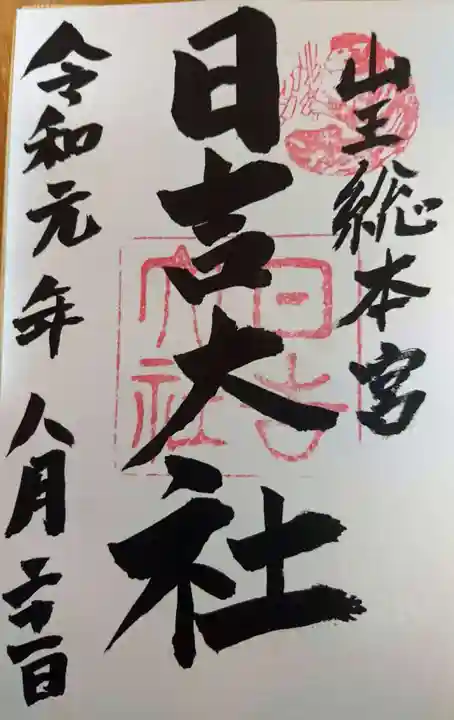 山王総本宮
日吉大社
日吉大社
令和元年八月二十一日